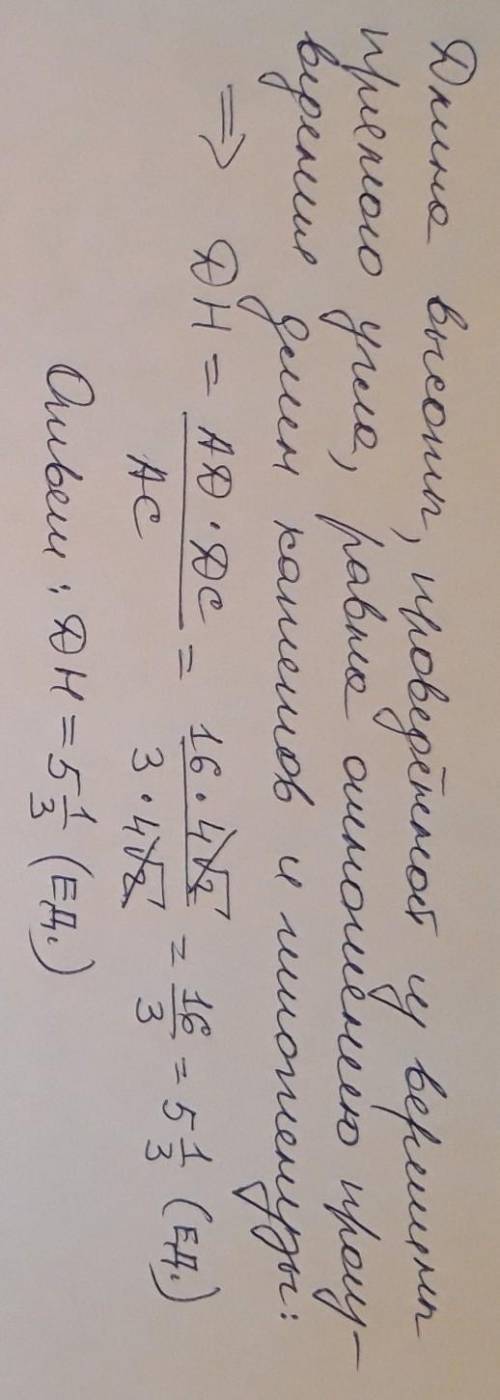 Длина высоты, проведённой из вершины
прямого угла, равна отношению произ-
ведения длин катетов и гипотенузы:
=> DH = AD · DC / AC = 16 · 4√2 / 3 · 4√2 = 16/3 = 5 1/3 (ед.)
Ответ: DH = 5 1/3 (ед.)